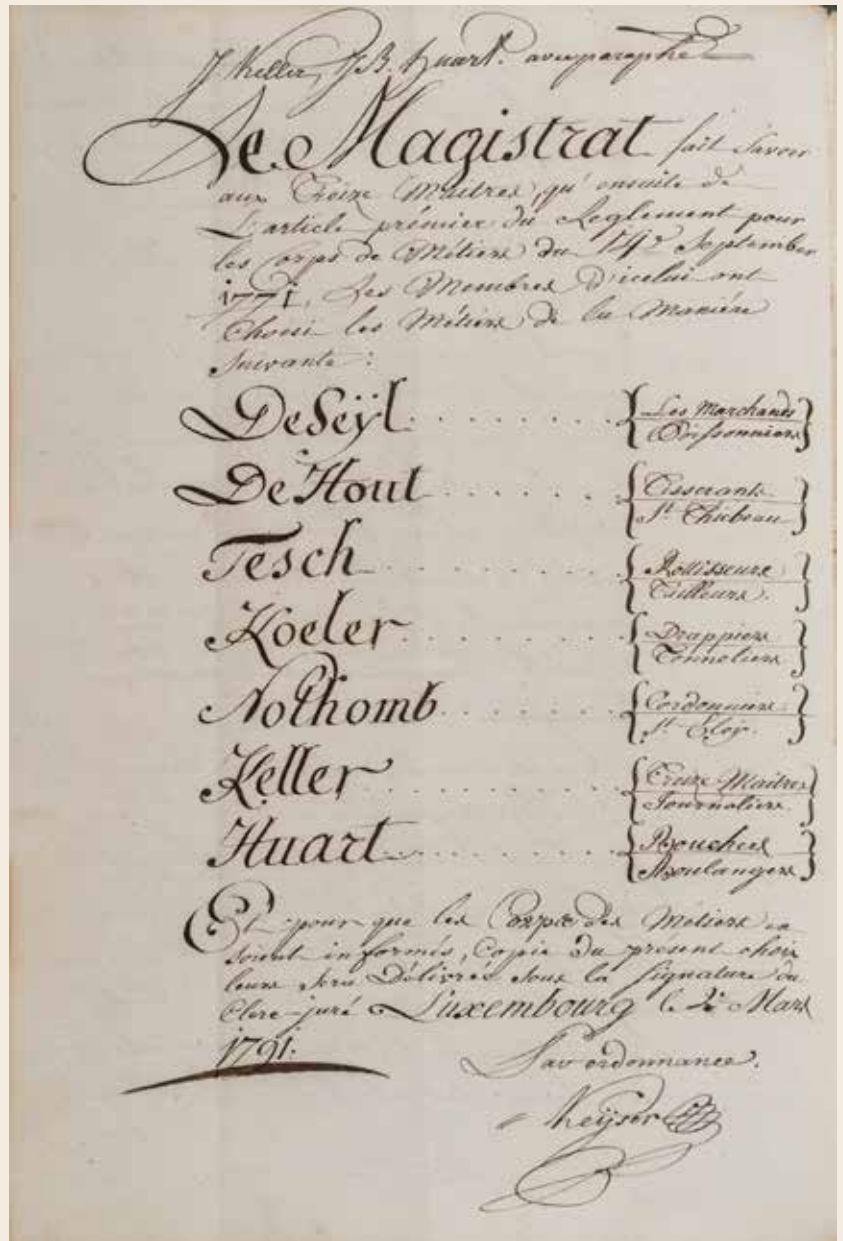 J Keller, J B. Huart. avec paraphe
Le Magistrat fait Savoir
aux Treize Maitres, qu'ensuite de
L'article prémier du Reglement pour
les Corps de Métiers du 14e September
1771, Les Membres D'icelui ont
Choisi les Métiers de la Maniére
Suivante :
DeSeÿl . . . . . . . { Les Marchands }
{ Poissonniers }
DeHout . . . . . . { Tisserants }
{ St Thiebeau }
Tesch . . . . . . . . { Rottisseurs }
{ Tailleurs. }
Koeler . . . . . . . { Drappiers }
{ Tonneliers }
Nothomb . . . . . . { Cordonniers }
{ St Eloy. }
Keller . . . . . . . . { Treize Maitres }
{ Journaliers }
Huart . . . . . . . . { Bouchers }
{ Boulangers }
Et pour que les Corps des Métiers en
soient informés, Copie du present choix
leurs sera Délivrée sous la signature du
Clerc-juré Luxembourg le 2e Mars
1791. Par ordonnance.
Keÿser